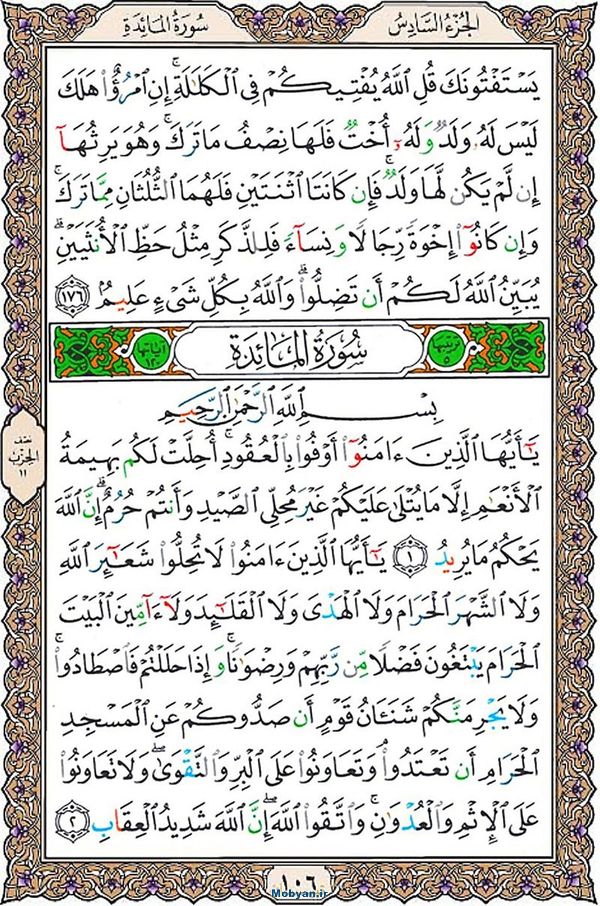 الجُزْءُ السَّادِسُ
سُورَةُ المَائِدَةِ
يَسْتَفْتُونَكَ قُلِ ٱللَّهُ يُفْتِيكُمْ فِى ٱلْكَلَٰلَةِ ۚ إِنِ ٱمْرُؤٌا۟ هَلَكَ
لَيْسَ لَهُۥ وَلَدٌ وَلَهُۥٓ أُخْتٌ فَلَهَا نِصْفُ مَا تَرَكَ ۚ وَهُوَ يَرِثُهَآ
إِن لَّمْ يَكُن لَّهَا وَلَدٌ ۚ فَإِن كَانَتَا ٱثْنَتَيْنِ فَلَهُمَا ٱلثُّلُثَانِ مِمَّا تَرَكَ ۚ
وَإِن كَانُوٓا۟ إِخْوَةً رِّجَالًا وَنِسَآءً فَلِلذَّكَرِ مِثْلُ حَظِّ ٱلْأُنثَيَيْنِ ۗ
يُبَيِّنُ ٱللَّهُ لَكُمْ أَن تَضِلُّوا۟ ۗ وَٱللَّهُ بِكُلِّ شَىْءٍ عَلِيمٌۢ ١٧٦
ترتيبها ٥
سُورَةُ المَائِدَةِ
آياتها ١٢٠
بِسْمِ ٱللَّهِ ٱلرَّحْمَٰنِ ٱلرَّحِيمِ
يَٰٓأَيُّهَا ٱلَّذِينَ ءَامَنُوٓا۟ أَوْفُوا۟ بِٱلْعُقُودِ ۚ أُحِلَّتْ لَكُم بَهِيمَةُ
ٱلْأَنْعَٰمِ إِلَّا مَا يُتْلَىٰ عَلَيْكُمْ غَيْرَ مُحِلِّى ٱلصَّيْدِ وَأَنتُمْ حُرُمٌ ۗ إِنَّ ٱللَّهَ
يَحْكُمُ مَا يُرِيدُ ١ يَٰٓأَيُّهَا ٱلَّذِينَ ءَامَنُوا۟ لَا تُحِلُّوا۟ شَعَٰٓئِرَ ٱللَّهِ
وَلَا ٱلشَّهْرَ ٱلْحَرَامَ وَلَا ٱلْهَدْىَ وَلَا ٱلْقَلَٰٓئِدَ وَلَآ ءَآمِّينَ ٱلْبَيْتَ
ٱلْحَرَامَ يَبْتَغُونَ فَضْلًا مِّن رَّبِّهِمْ وَرِضْوَٰنًا ۚ وَإِذَا حَلَلْتُمْ فَٱصْطَادُوا۟ ۚ
وَلَا يَجْرِمَنَّكُمْ شَنَـَٔانُ قَوْمٍ أَن صَدُّوكُمْ عَنِ ٱلْمَسْجِدِ
ٱلْحَرَامِ أَن تَعْتَدُوا۟ ۘ وَتَعَاوَنُوا۟ عَلَى ٱلْبِرِّ وَٱلتَّقْوَىٰ ۖ وَلَا تَعَاوَنُوا۟
عَلَى ٱلْإِثْمِ وَٱلْعُدْوَٰنِ ۚ وَٱتَّقُوا۟ ٱللَّهَ ۖ إِنَّ ٱللَّهَ شَدِيدُ ٱلْعِقَابِ ٢
نصف
الحزب
١١
١٠٦
Mobyan.ir